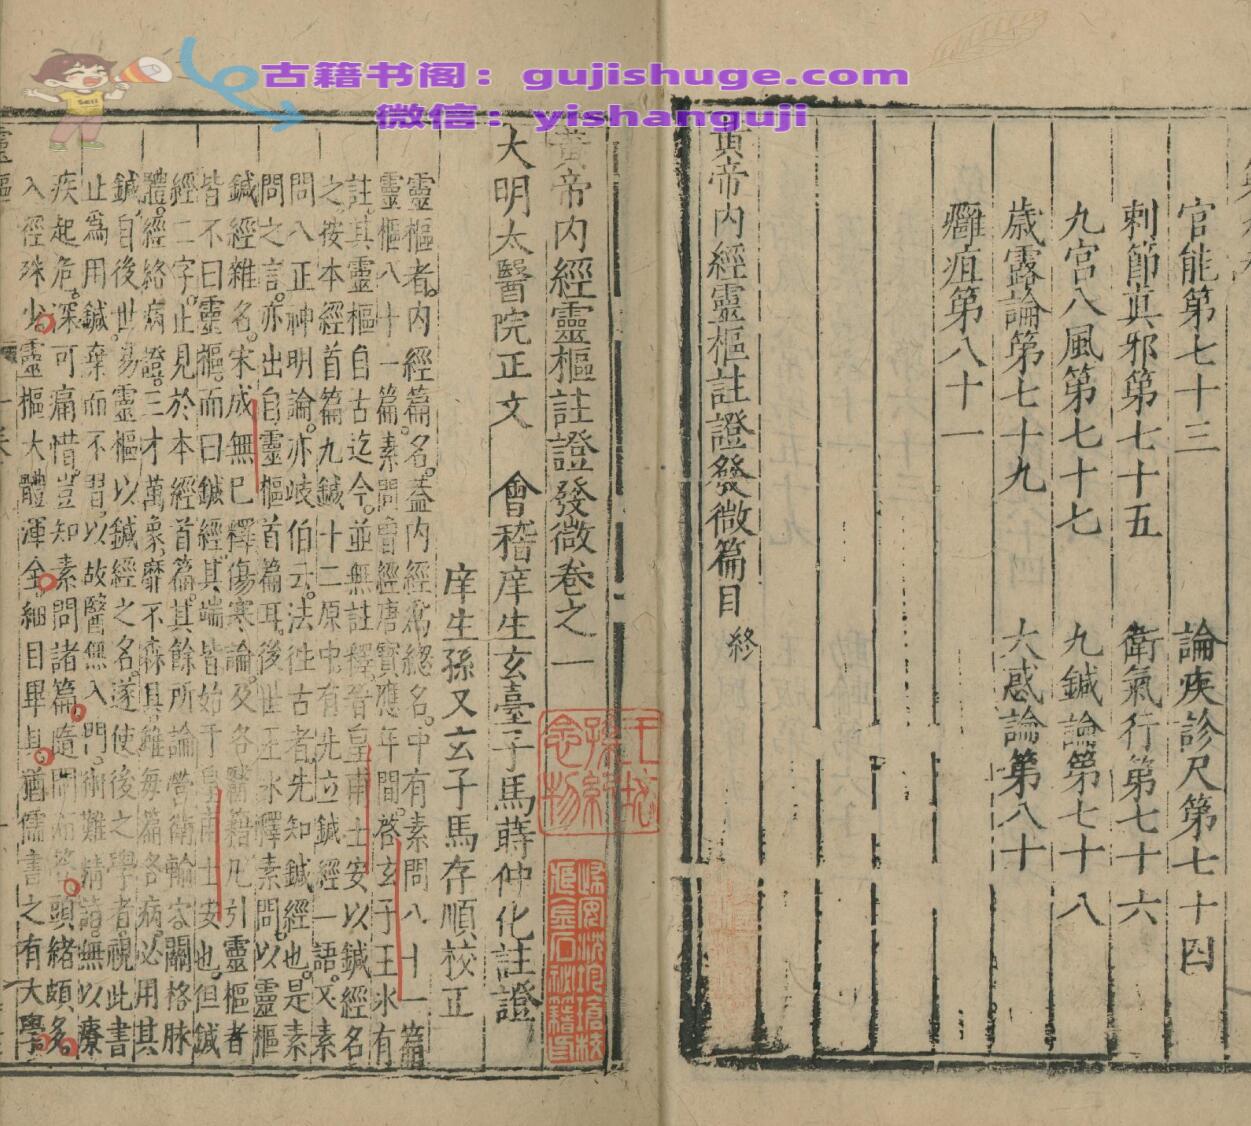 古籍书阁：gujishuge.com
微信：yishanguji
官能第七十三
論疾診尺第七十四
刺節真邪第七十五
衛氣行第七十六
九宮八風第七十七
九鍼論第七十八
歲露論第七十九
六惑論第八十
癰疽第八十一
黃帝內經靈樞註證發微篇目終
黃帝內經靈樞註證發微卷之一
大明太醫院正文　會稽庠生玄臺子馬蒔仲化註證
庠生孫又玄子馬存順校正
靈樞者。內經篇名。蓋內經爲總名。中有素問八十一篇
靈樞八十一篇。素問曾經唐寶應年間。啓玄子王氷有
註。其靈樞自古迄今。並無註釋。晉皇甫士安以鍼經名
之。按本經首篇九鍼十二原中有先立鍼經一語。又素
問八正神明論。亦岐伯云。法徃古者。先知鍼經也。是素
問之言。亦出自靈樞首篇耳。後世王氷釋素問。以靈樞
鍼經雜名。宋成無巳釋傷寒論。及各醫籍凡引靈樞者
皆不曰靈樞。而曰鍼經。其端皆始于皇甫士安也。但鍼
經二字。止見於本經首篇。其餘所論營衛輸穴關格脉
體。經絡病證。三才萬象。靡不森具。雖每篇各病。必用其
鍼。自後世易靈樞以鍼經之名。遂使後之學者。視此書
止爲用鍼。棄而不習。以故醫無入門。術難精詣。無以療
疾起危。深可痛惜。豈知素問諸篇。隨問而答。頭緒頗多。
入徑殊少。靈樞大體渾全。細目畢具。猶儒書之有大學